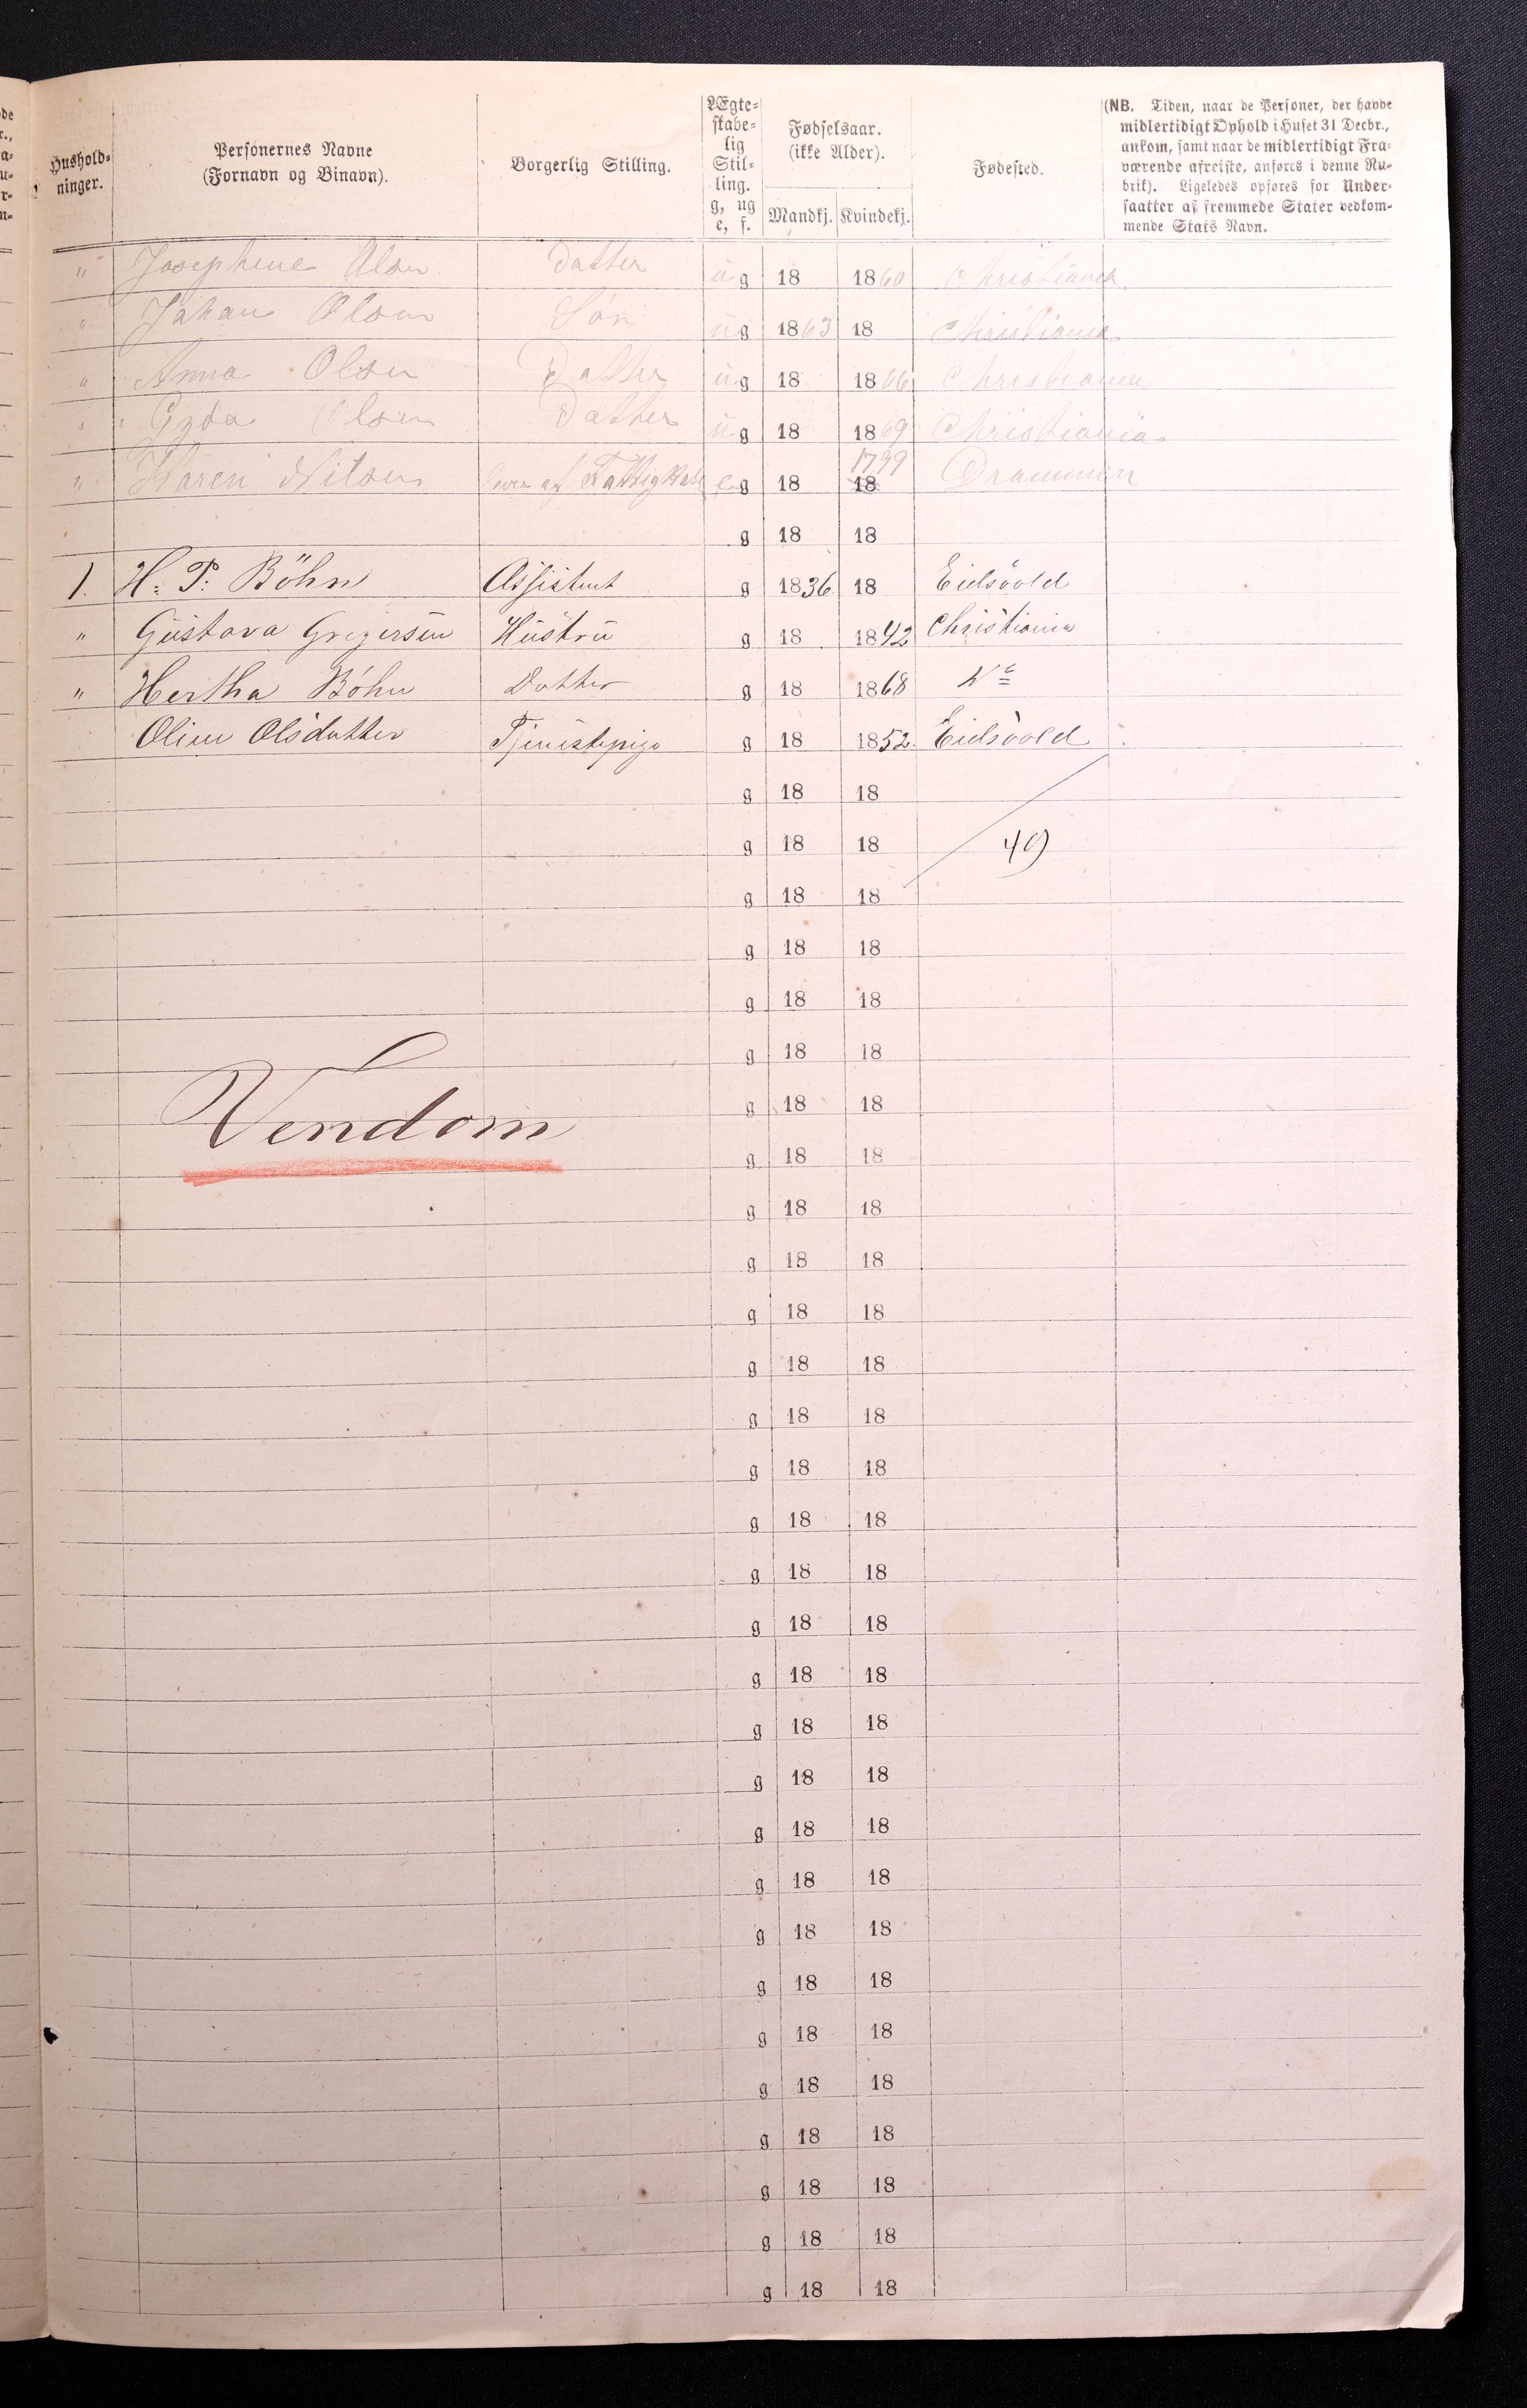 Hushold-
ninger.
Personernes Navne
(Fornavn og Binavn).
Borgerlig Stilling.
Ægte-
skabe-
lig
Stil-
ling.
g, ug
e, f.
Fødselsaar.
(ikke Alder).
Mandkj. Kvindekj.
Fødested.
(NB. Tiden, naar de Personer, der havde
midlertidigt Ophold i Huset 31 Decbr.,
ankom, samt naar de midlertidigt Fra-
værende afreiste, anføres i denne Ru-
brik). Ligeledes opføres for Under-
saatter af fremmede Stater vedkom-
mende Stats Navn.
" Josephine Olsen Datter ug 18 1860 Christiania
" Johan Olsen Søn ug 1863 18 Christiania
" Anna Olsen Datter ug 18 1866 Christiania
" Gyda Olsen Datter ug 18 1869 Christiania
" Karen Nilsen af eg 18 1799 18 Drammen
g 18 18
1. H. P. Böhn Assistent g 1836 18 Eidsvold
" Gustava Gregersen Hustru g 18 1842 Christiania
" Hertha Böhn Datter g 18 1868 Do
Oline Olsdatter Tjenestepige g 18 1852 Eidsvold
g 18 18
g 18 18 49
g 18 18
g 18 18
g 18 18
g 18 18
Vendom g 18 18
g 18 18
g 18 18
g 18 18
g 18 18
g 18 18
g 18 18
g 18 18
g 18 18
g 18 18
g 18 18
g 18 18
g 18 18
g 18 18
g 18 18
g 18 18
g 18 18
g 18 18
g 18 18
g 18 18
g 18 18
g 18 18
g 18 18
g 18 18